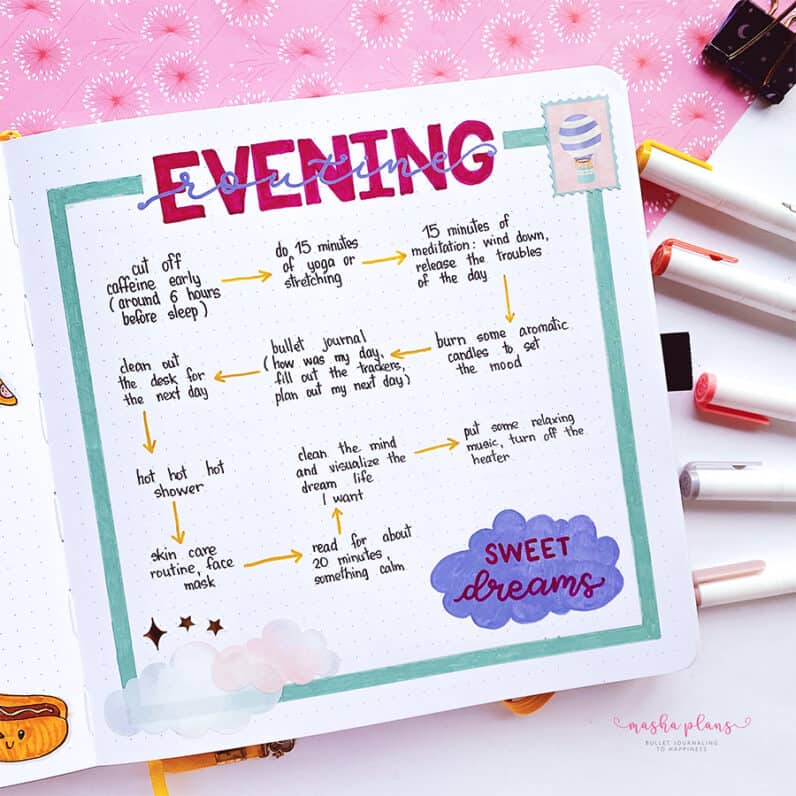 EVENING
routine
cut off
caffeine early
(around 6 hours
before sleep)
do 15 minutes
of yoga or
stretching
15 minutes of
meditation: wind down,
release the troubles
of the day
burn some aromatic
candles to set
the mood
bullet journal
(how was my day,
fill out the trackers,
plan out my next day)
clean out
the desk for
the next day
hot hot hot
shower
skin care
routine, face
mask
read for about
20 minutes,
something calm
clean the mind
and visualize the
dream life
I want
put some relaxing
music, turn off the
heater
SWEET
dreams
masha plans
BULLET JOURNALING
TO HAPPINESS